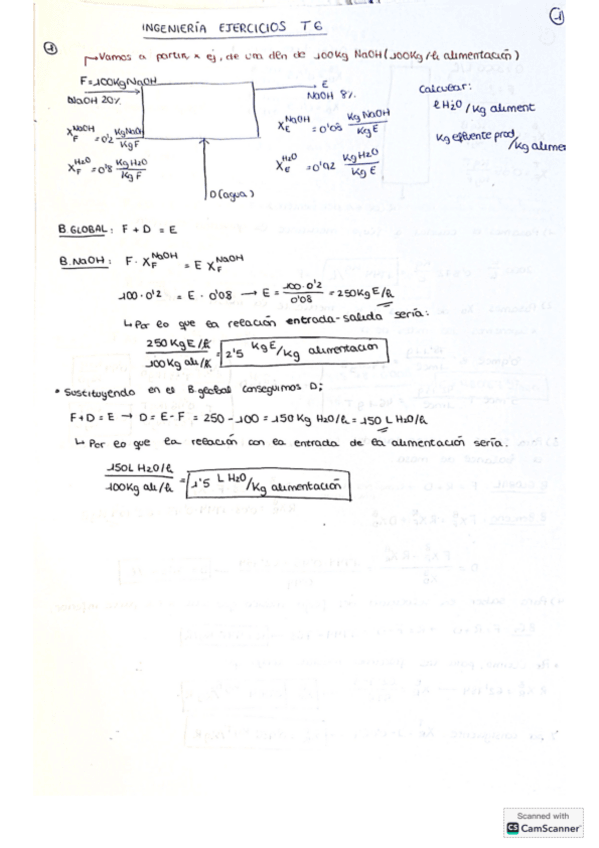 INGENIERÍA EJERCICIOS T6
①
①
Vamos a partir, x ej, de una dln de 100Kg NaOH (100Kg/h alimentación)
F=100KgNaOH
NaOH 20%
E
NaOH 8%
Calcular:
lH2O/Kg aliment
Kg efluente prod/Kg alimen
X_F^NaOH = 0'2 KgNaOH/KgF
X_F^H2O = 0'8 KgH2O/KgF
X_E^NaOH = 0'08 KgNaOH/KgE
X_E^H2O = 0'92 KgH2O/KgE
D(agua)
B GLOBAL: F + D = E
B. NaOH: F · X_F^NaOH = E X_F^NaOH
100 · 0'2 = E · 0'08 → E = 100·0'2/0'08 = 250KgE/h
↳ Por lo que la relación entrada-salida sería:
250KgE/h / 100Kg ali/h = 2'5 KgE/Kg alimentación
• Sustituyendo en el B global conseguimos D;
F+D = E → D = E - F = 250 - 100 = 150 Kg H2O/h = 150 L H2O/h
↳ Por lo que la relación con la entrada de la alimentación sería:
150L H2O/h / 100Kg ali/h = 1'5 L H2O/Kg alimentación
Scanned with
CS CamScanner